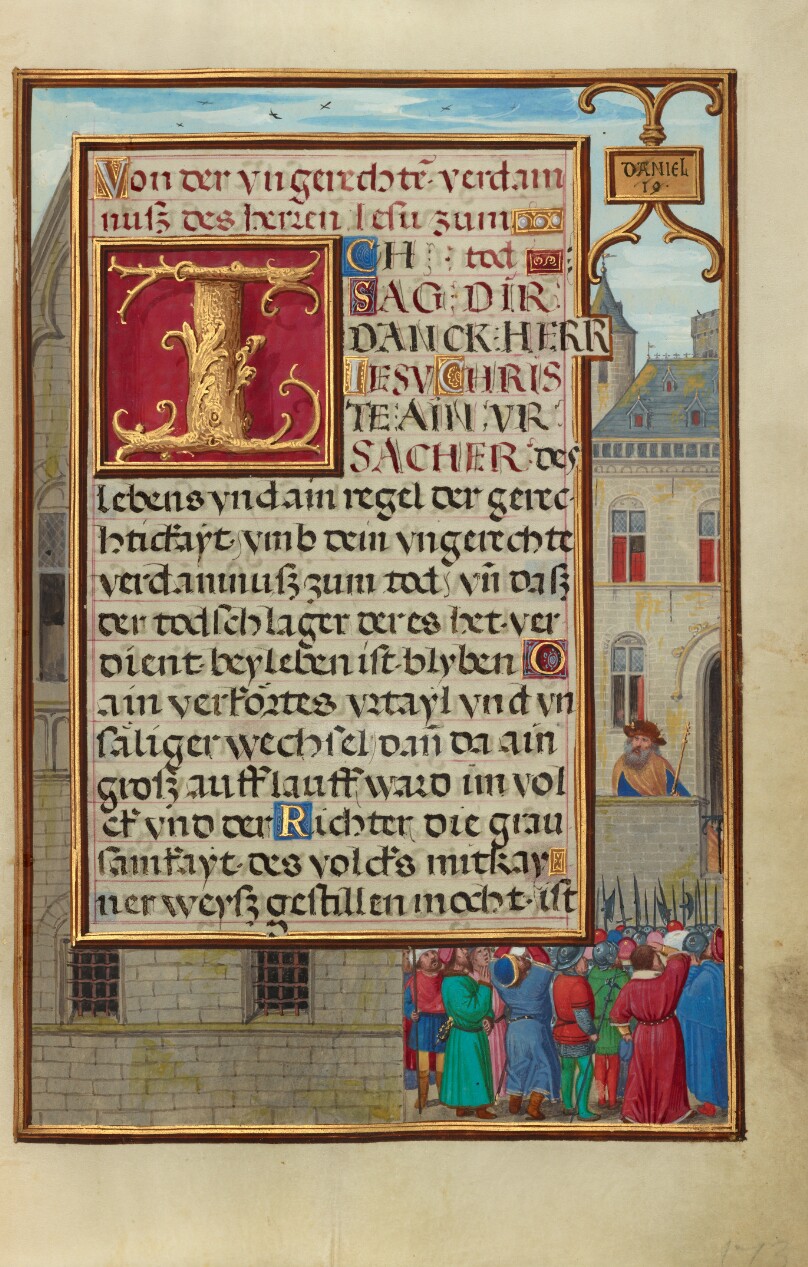 DANIEL
19
Von der vngerechtē verdam
nusz des herren Iesu zum
ICH : tod
SAG : DIR
DANCK : HERR
IESV CHRIS
TE : AIN : VR
SACHER des
lebens vnd ain regel der gerec
htickayt, vmb dein vngerechte
verdamnusz zum tod, vn̄ dasz
der todschlager der es het ver
dient bey leben ist blyben O
ain verkörtes vrtayl vnd vn
säliger wechsel, dan̄ da ain
grosz aufflauff ward im vol
ck vnd der Richter die grau
samkayt des volcks mit kay
ner weysz gestillen mocht, ist